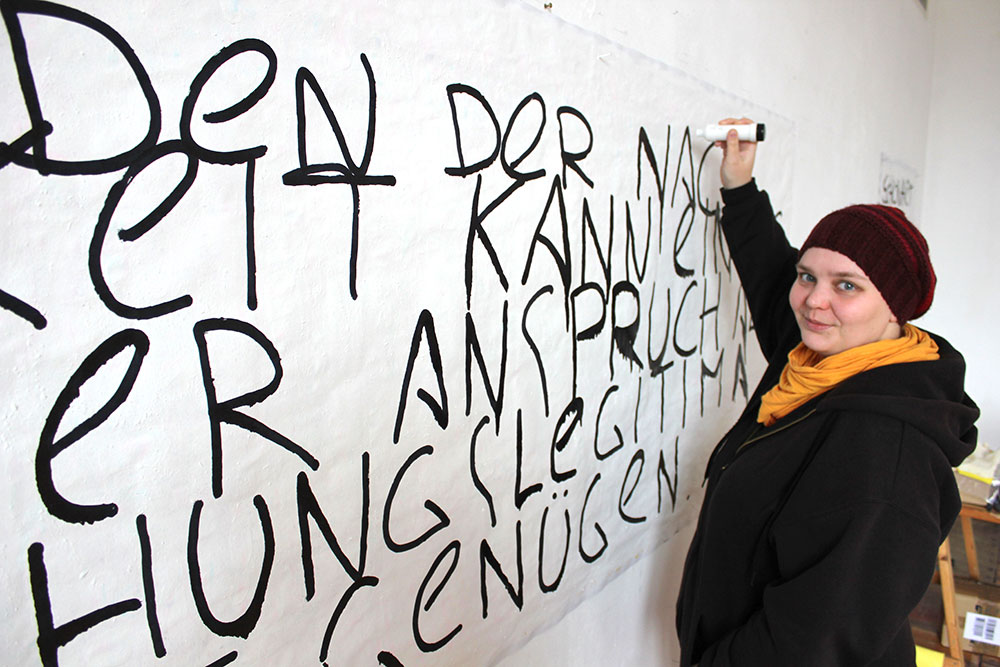 DeN DeR NAC
eIT KANN eIN
eR ANSPRUCH
HUNGSLeGITIMA
GeNÜGeN.